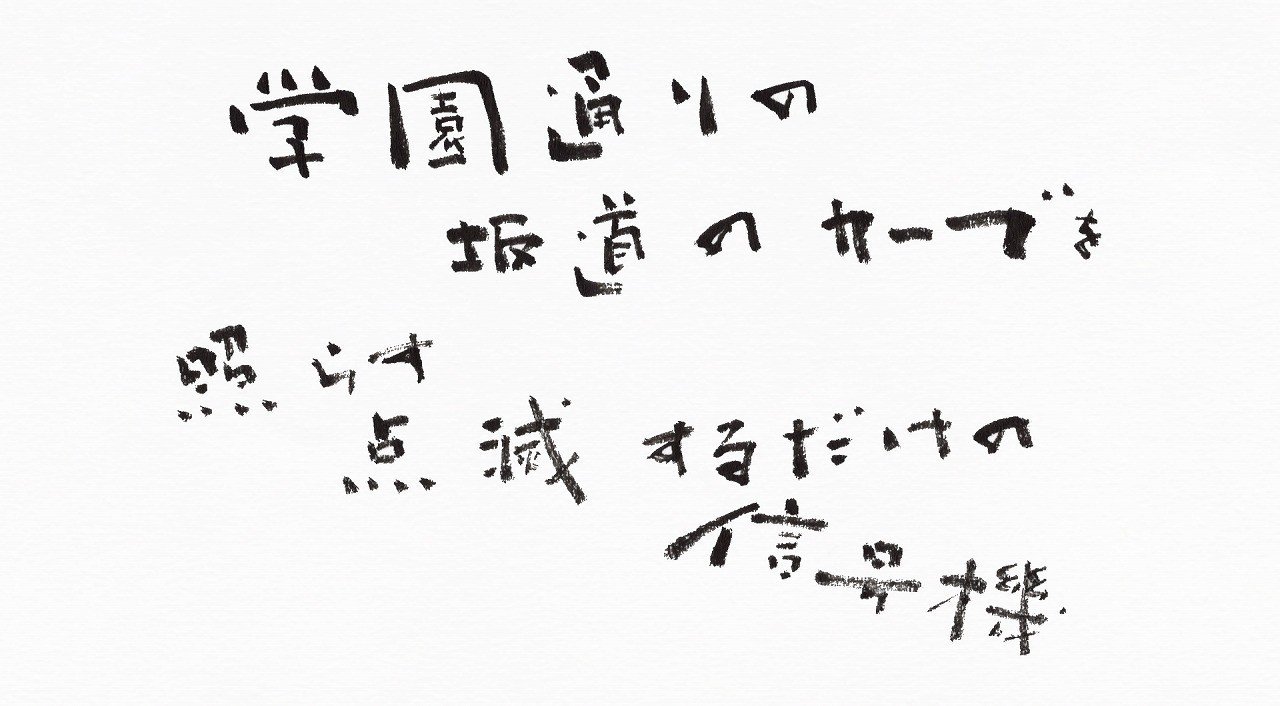 学園通りの
坂道のカーブを
照らす
点滅するだけの
信号機